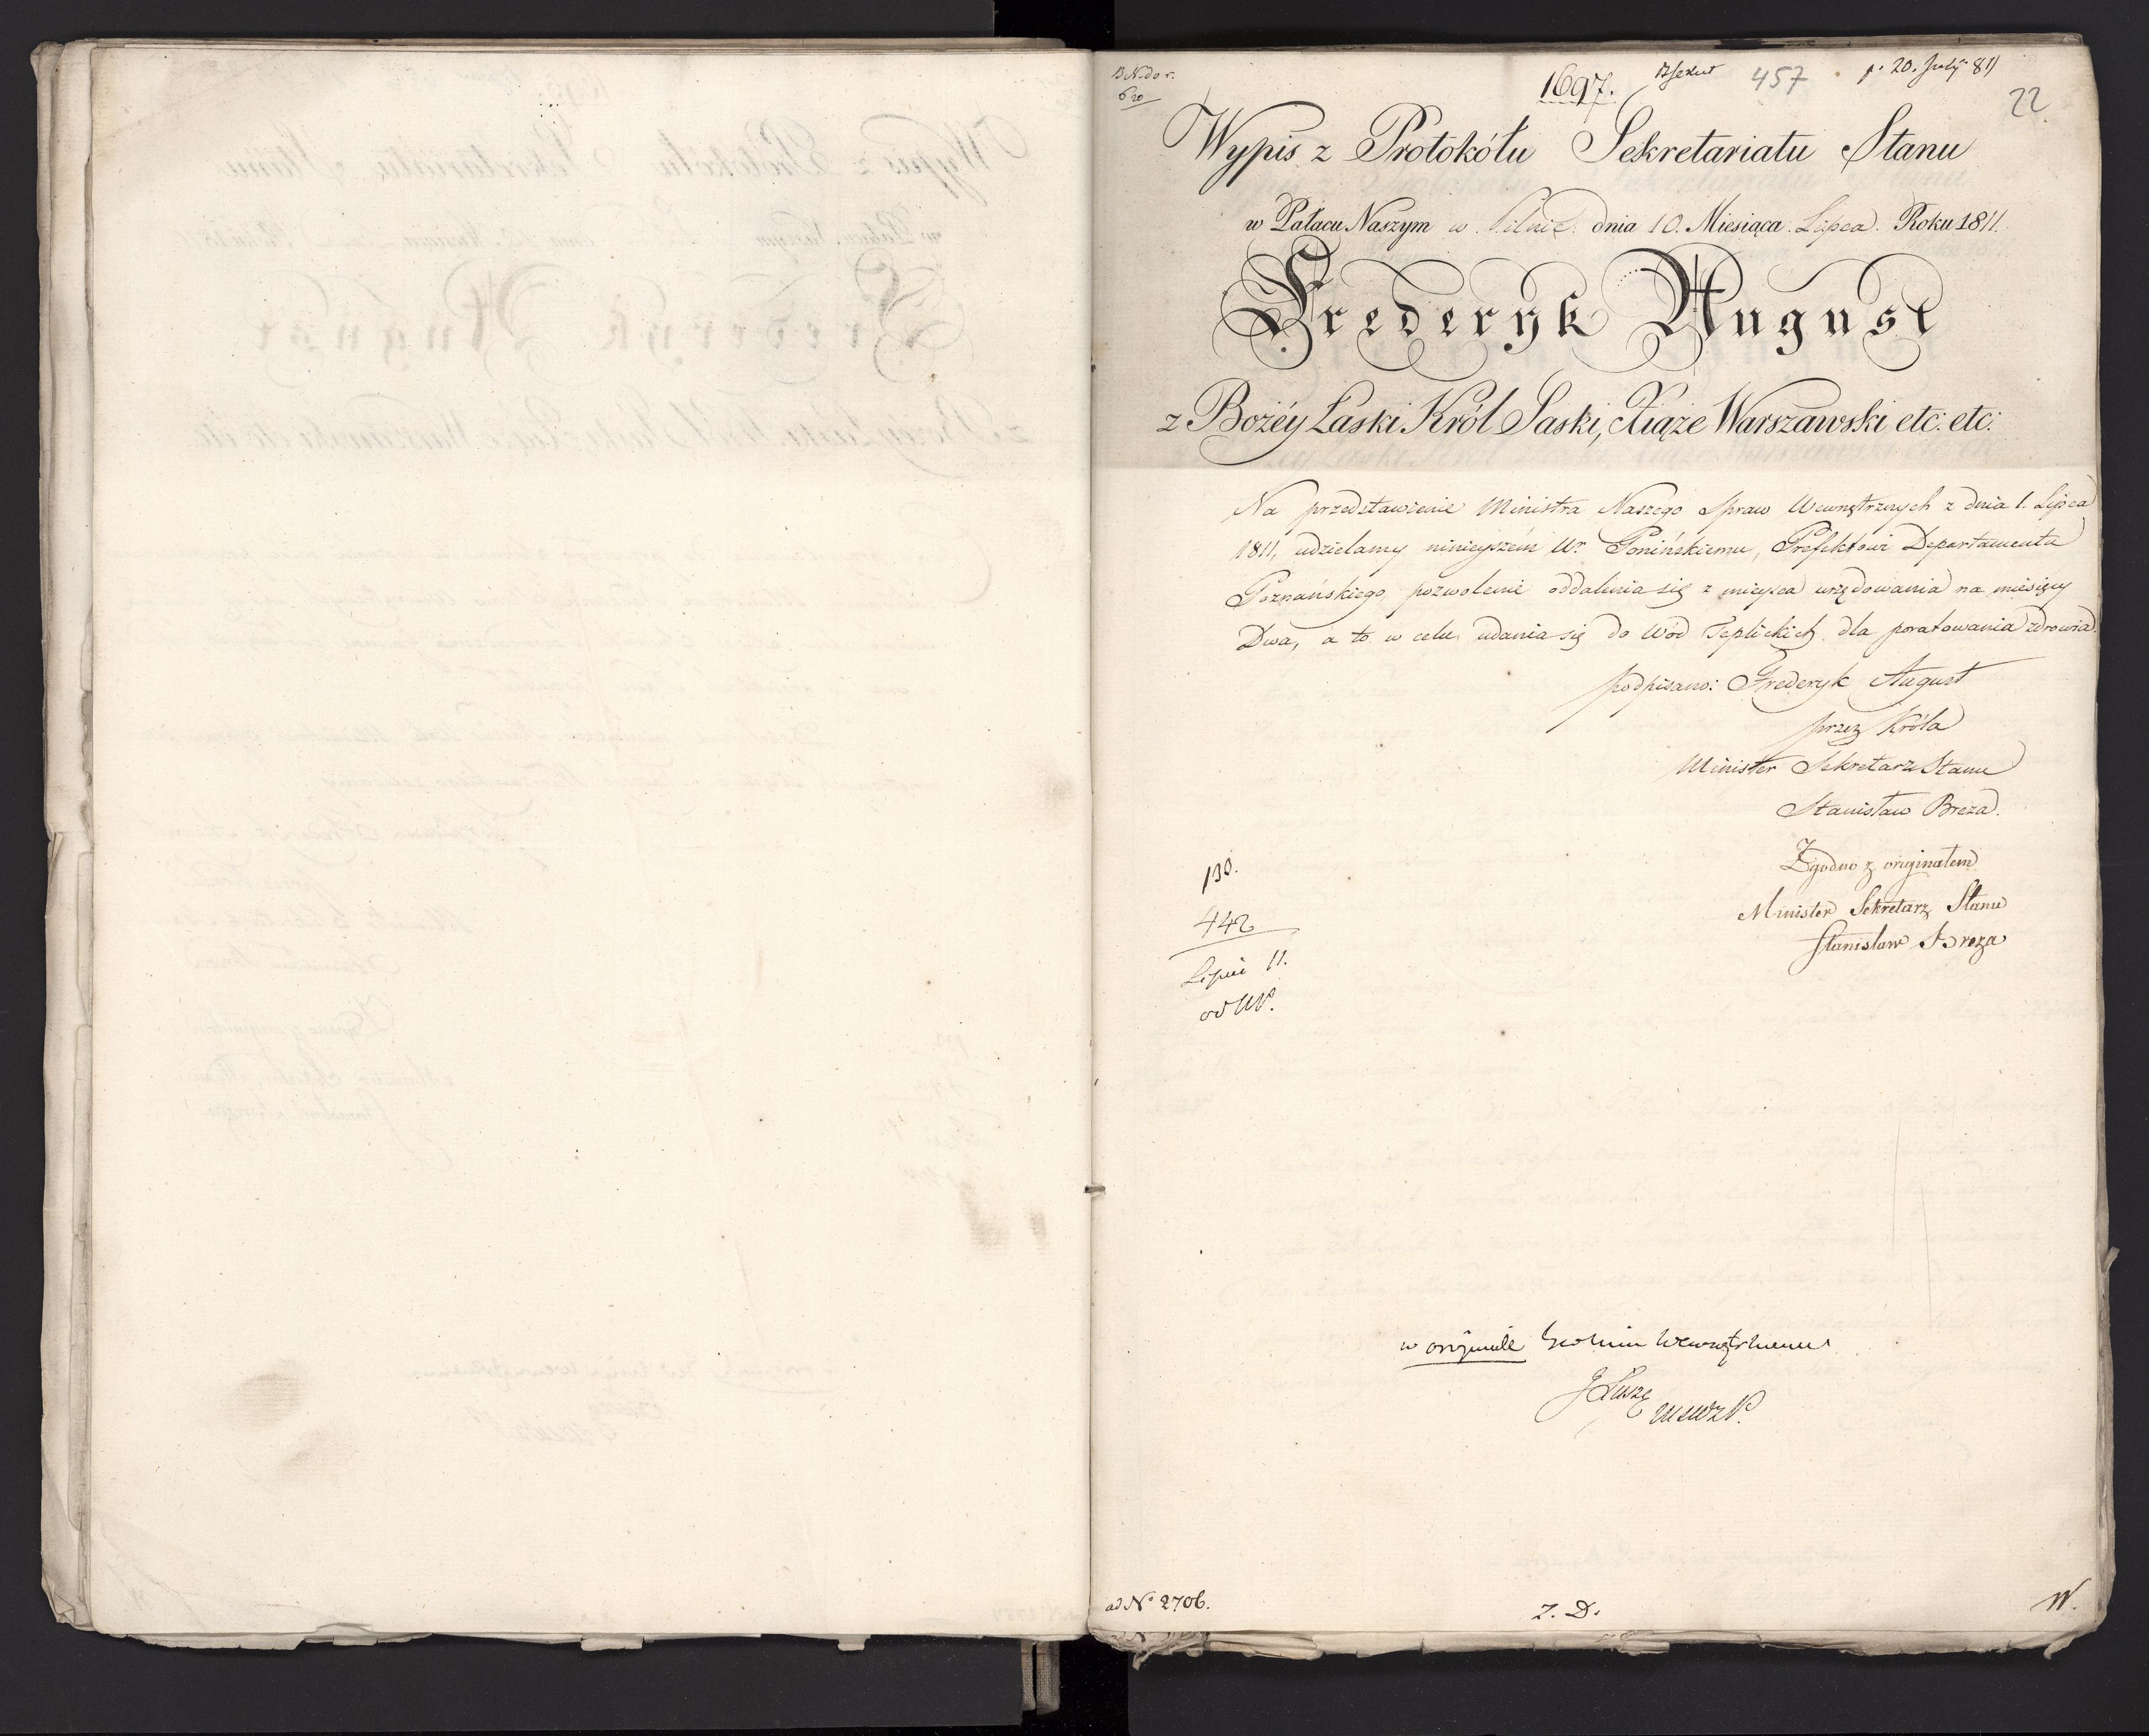 1697.
457
p. 20. July 811
22
Wypis z Protokółu Sekretariatu Stanu
w Pałacu Naszym w Pilnic. dnia 10. Miesiąca Lipca. Roku 1811.
Frederyk August
z Bożéy Łaski Król Saski, Xiąże Warszawski etc: etc:
Na przedstawienie Ministra Naszego Spraw Wewnętrznych z dnia 1. Lipca
1811, udzielamy ninieyszém Ur. Ponińskiemu, Prefektowi Departamentu
Poznańskiego, pozwolenie oddalenia się z mieysca urzędowania na miesięcy
Dwa, a to w celu udania się do Wód Teplickich dla poratowania zdrowia.
podpisano: Frederyk August
przez Króla
Minister Sekretarz Stanu
Stanisław Breza.
Zgodno z oryginałem
Minister Sekretarz Stanu
Stanisław Breza
130.
442
Lipiec 11.
w originale
ad No 2706.
Z. D.
W.